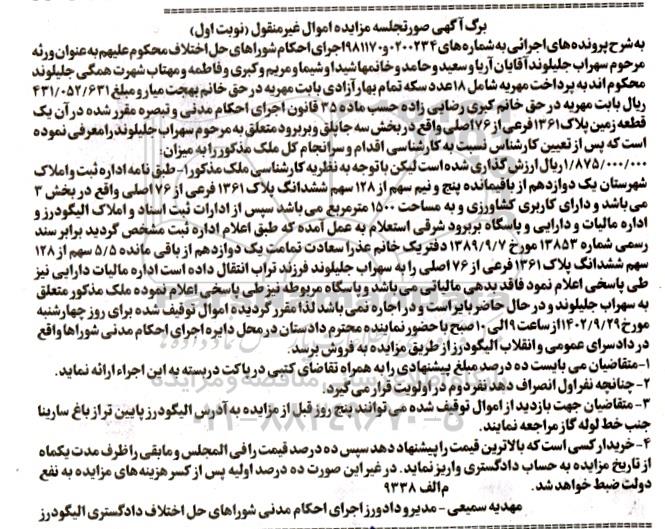 برگ آگهی صورتجلسه مزایده اموال غیرمنقول (نوبت اول)
به شرح پرونده های اجرائی به شماره های ۰۲۰۰۲۳۴ و ۹۸۱۱۷۰ اجرای احکام شوراهای حل اختلاف محکوم علیهم به عنوان ورثه
مرحوم سهراب جلیلوند آقایان آریا و سعید و حامد و خانمها شیدا و شیما و مریم و کبری و فاطمه و مهتاب شهرت همگی جلیلوند
محکوم اند به پرداخت مهریه شامل ۱۸ عدد سکه تمام بهار آزادی بابت مهریه در حق خانم بهجت میار و مبلغ ۴۳۱/۰۵۲/۶۳۱
ریال بابت مهریه در حق خانم کبری رضایی زاده حسب ماده ۳۵ قانون اجرای احکام مدنی و تبصره مقرر شده در آن یک
قطعه زمین پلاک ۱۳۶۱ فرعی از ۷۶ اصلی واقع در بخش سه جاپلق و بربرود متعلق به مرحوم سهراب جلیلوند را معرفی نموده
است که پس از تعیین کارشناس نسبت به کارشناسی اقدام و سرانجام کل ملک مذکور را به میزان:
۱/۸۷۵/۰۰۰/۰۰۰ ریال ارزش گذاری شده است لیکن با توجه به نظریه کارشناسی ملک مذکور ۱- طبق نامه اداره ثبت و املاک
شهرستان یک دوازدهم از باقیمانده پنج و نیم سهم از ۱۲۸ سهم ششدانگ پلاک ۱۳۶۱ فرعی از ۷۶ اصلی واقع در بخش ۳
می باشد و دارای کاربری کشاورزی و به مساحت ۱۵۰۰ مترمربع می باشد سپس از ادارات ثبت اسناد و املاک الیگودرز و
اداره مالیات و دارایی و پاسگاه بربرود شرقی استعلام به عمل آمده که طبق اعلام اداره ثبت مشخص گردید برابر سند
رسمی شماره ۱۳۸۵۳ مورخ ۱۳۸۹/۹/۷ دفتر یک خانم عذرا سعادت تمامت یک دوازدهم از باقی مانده ۵/۵ سهم از ۱۲۸
سهم ششدانگ پلاک ۱۳۶۱ فرعی از ۷۶ اصلی را به سهراب جلیلوند فرزند تراب انتقال داده است اداره مالیات دارایی نیز
طی پاسخی اعلام نمود فاقد بدهی مالیاتی می باشد و پاسگاه مربوطه نیز طی پاسخی اعلام نموده ملک مذکور متعلق
به سهراب جلیلوند و در حال حاضر بایر است و در اجاره نمی باشد لذا مقرر گردیده اموال توقیف شده برای روز چهارشنبه
مورخ ۱۴۰۲/۹/۲۹ از ساعت ۹ الی ۱۰ صبح با حضور نماینده محترم دادستان در محل دایره اجرای احکام مدنی شوراها واقع
در دادسرای عمومی و انقلاب الیگودرز از طریق مزایده به فروش برسد.
۱- متقاضیان می بایست ده درصد مبلغ پیشنهادی را به همراه تقاضای کتبی در پاکت دربسته به این اجراء ارائه نماید.
۲- چنانچه نفر اول انصراف دهد نفر دوم در اولویت قرار می گیرد.
۳- متقاضیان جهت بازدید از اموال توقیف شده می توانند پنج روز قبل از مزایده به آدرس الیگودرز پایین تر از باغ سارینا
جنب خط لوله گاز مراجعه نمایند.
۴- خریدار کسی است که بالاترین قیمت را پیشنهاد دهد سپس ده درصد قیمت را فی المجلس و مابقی را ظرف مدت یکماه
از تاریخ مزایده به حساب دادگستری واریز نماید. در غیر این صورت ده درصد اولیه پس از کسر هزینه های مزایده به نفع
دولت ضبط خواهد شد. م الف ۹۳۳۸
مهدیه سمیعی - مدیر و دادورز اجرای احکام مدنی شوراهای حل اختلاف دادگستری الیگودرز